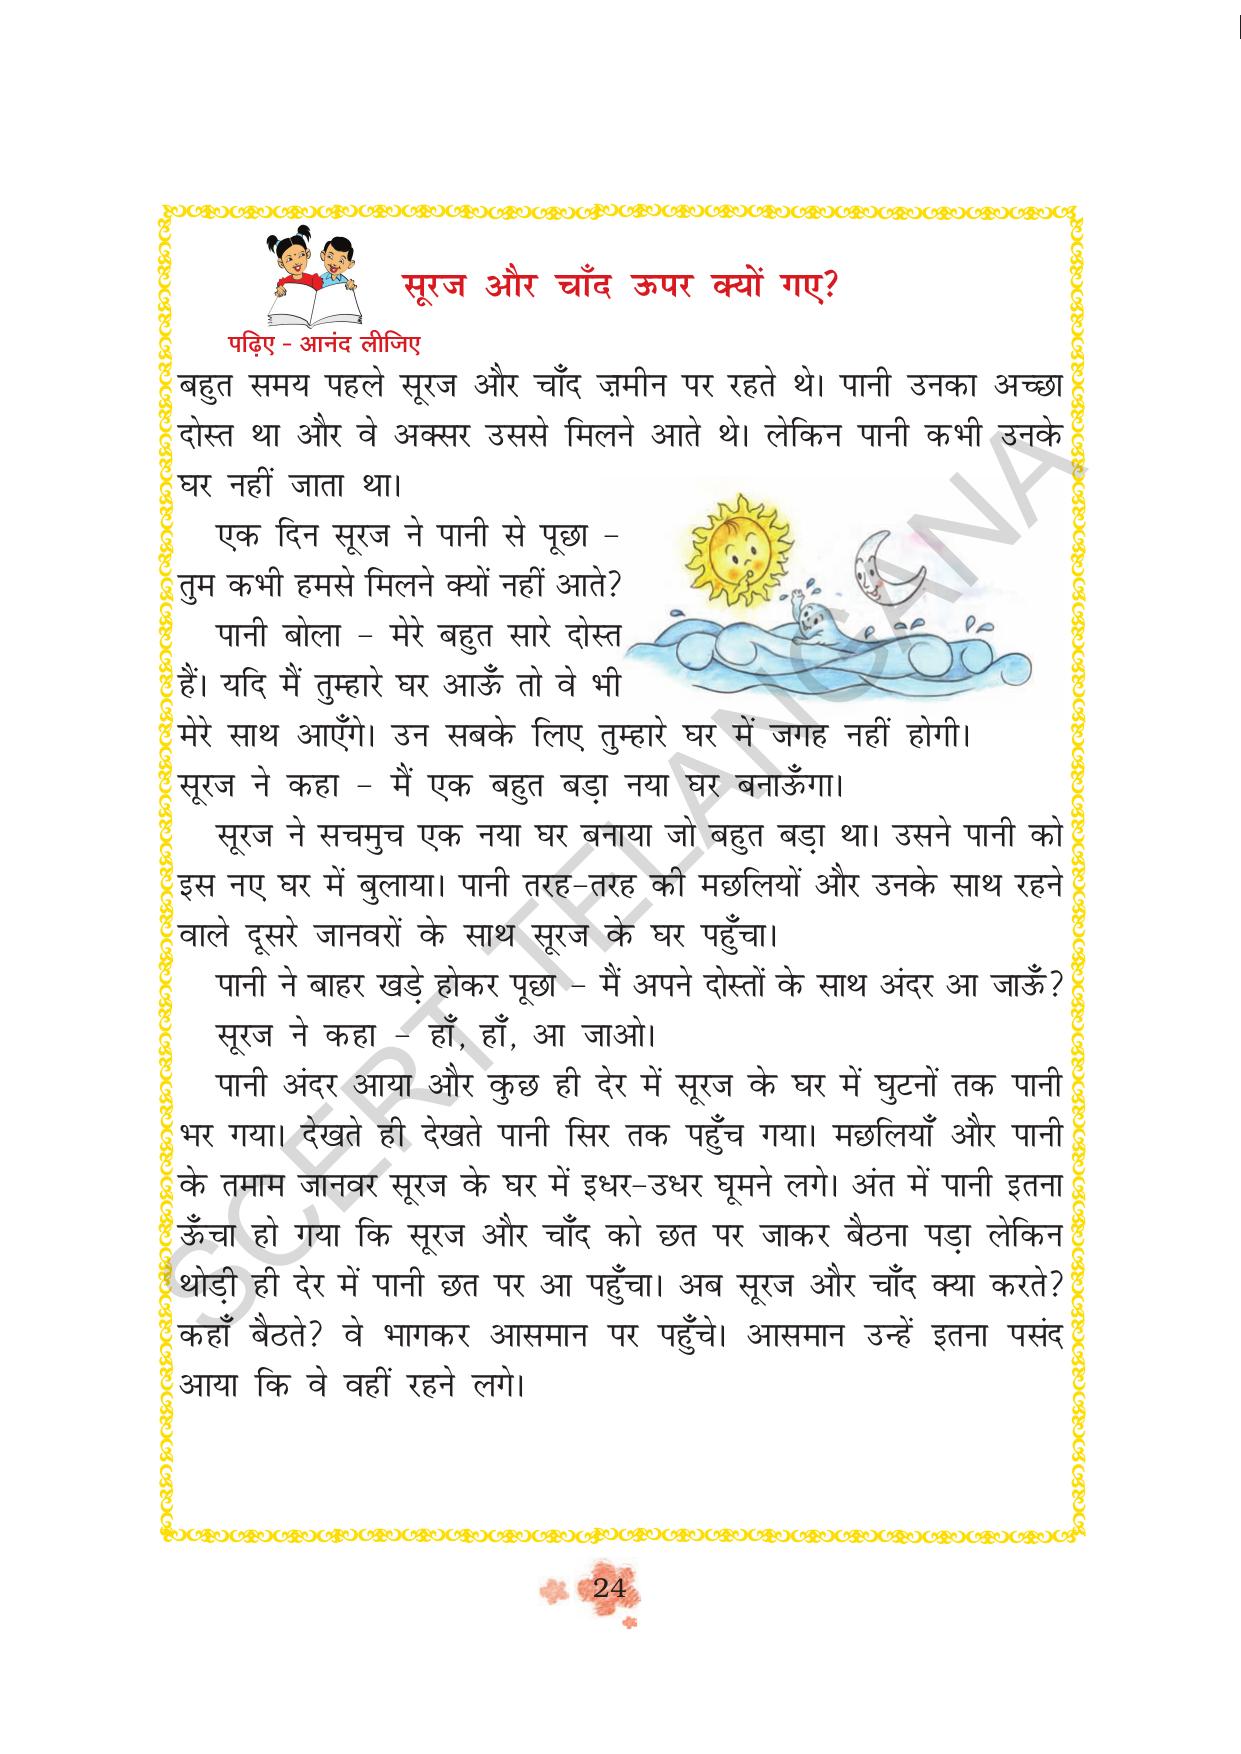 सूरज और चाँद ऊपर क्यों गए?
पढ़िए - आनंद लीजिए
बहुत समय पहले सूरज और चाँद ज़मीन पर रहते थे। पानी उनका अच्छा
दोस्त था और वे अक्सर उससे मिलने आते थे। लेकिन पानी कभी उनके
घर नहीं जाता था।
एक दिन सूरज ने पानी से पूछा –
तुम कभी हमसे मिलने क्यों नहीं आते?
पानी बोला – मेरे बहुत सारे दोस्त
हैं। यदि मैं तुम्हारे घर आऊँ तो वे भी
मेरे साथ आएँगे। उन सबके लिए तुम्हारे घर में जगह नहीं होगी।
सूरज ने कहा – मैं एक बहुत बड़ा नया घर बनाऊँगा।
सूरज ने सचमुच एक नया घर बनाया जो बहुत बड़ा था। उसने पानी को
इस नए घर में बुलाया। पानी तरह–तरह की मछलियों और उनके साथ रहने
वाले दूसरे जानवरों के साथ सूरज के घर पहुँचा।
पानी ने बाहर खड़े होकर पूछा – मैं अपने दोस्तों के साथ अंदर आ जाऊँ?
सूरज ने कहा – हाँ, हाँ, आ जाओ।
पानी अंदर आया और कुछ ही देर में सूरज के घर में घुटनों तक पानी
भर गया। देखते ही देखते पानी सिर तक पहुँच गया। मछलियाँ और पानी
के तमाम जानवर सूरज के घर में इधर–उधर घूमने लगे। अंत में पानी इतना
ऊँचा हो गया कि सूरज और चाँद को छत पर जाकर बैठना पड़ा लेकिन
थोड़ी ही देर में पानी छत पर आ पहुँचा। अब सूरज और चाँद क्या करते?
कहाँ बैठते? वे भागकर आसमान पर पहुँचे। आसमान उन्हें इतना पसंद
आया कि वे वहीं रहने लगे।
SCERT TELANGANA
24